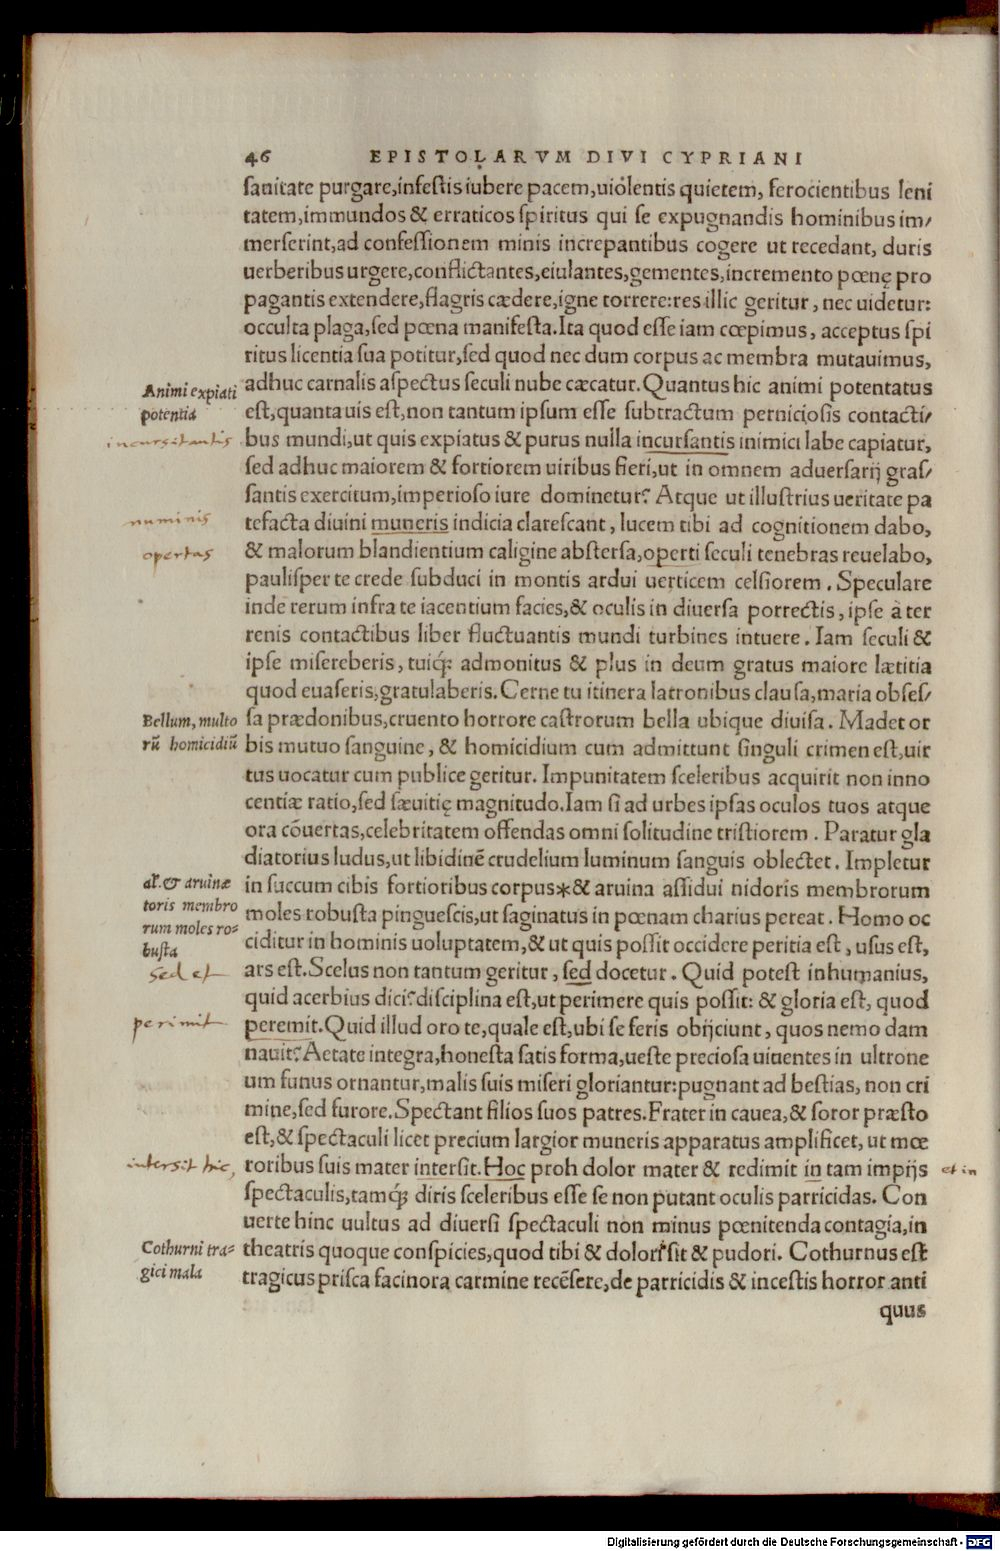 46 EPISTOLARVM DIVI CYPRIANI
sanitate purgare,infestis iubere pacem,uiolentis quietem, ferocientibus leni
tatem,immundos & erraticos spiritus qui se expugnandis hominibus im/
merserint,ad confessionem minis increpantibus cogere ut recedant, duris
uerberibus urgere,conflictantes,eiulantes,gementes,incremento pœnę pro
pagantis extendere,flagris cædere,igne torrere:res illic geritur, nec uidetur:
occulta plaga,sed pœna manifesta.Ita quod esse iam cœpimus, acceptus spi
ritus licentia sua potitur,sed quod nec dum corpus ac membra mutauimus,
Animi expiati
potentia
adhuc carnalis aspectus seculi nube cæcatur.Quantus hic animi potentatus
est,quanta uis est,non tantum ipsum esse subtractum perniciosis contacti/
incursitantis
bus mundi,ut quis expiatus & purus nulla incursantis inimici labe capiatur,
sed adhuc maiorem & fortiorem uiribus fieri,ut in omnem aduersarij gras/
santis exercitum,imperioso iure dominetur? Atque ut illustrius ueritate pa
numinis
tefacta diuini muneris indicia clarescant, lucem tibi ad cognitionem dabo,
opertas
& malorum blandientium caligine abstersa,operti seculi tenebras reuelabo,
paulisper te crede subduci in montis ardui uerticem celsiorem. Speculare
inde rerum infra te iacentium facies,& oculis in diuersa porrectis, ipse à ter
renis contactibus liber fluctuantis mundi turbines intuere. Iam seculi &
ipse misereberis, tuiq; admonitus & plus in deum gratus maiore lætitia
quod euaseris,gratulaberis.Cerne tu itinera latronibus clausa,maria obses/
Bellum, multo
rū homicidiū
sa prædonibus,cruento horrore castrorum bella ubique diuisa. Madet or
bis mutuo sanguine, & homicidium cum admittunt singuli crimen est,uir
tus uocatur cum publice geritur. Impunitatem sceleribus acquirit non inno
centiæ ratio,sed sæuitię magnitudo.Iam si ad urbes ipsas oculos tuos atque
ora cōuertas,celebritatem offendas omni solitudine tristiorem. Paratur gla
diatorius ludus,ut libidinē crudelium luminum sanguis oblectet. Impletur
al. & aruinæ
toris membro
rum moles ro=
busta
in succum cibis fortioribus corpus*& aruina assidui nidoris membrorum
moles robusta pinguescis,ut saginatus in pœnam charius pereat. Homo oc
ciditur in hominis uoluptatem,& ut quis possit occidere peritia est, usus est,
sed et
ars est.Scelus non tantum geritur, sed docetur. Quid potest inhumanius,
quid acerbius dici? disciplina est,ut perimere quis possit: & gloria est, quod
perimit
peremit.Quid illud oro te,quale est,ubi se feris obijciunt, quos nemo dam
nauit? Aetate integra,honesta satis forma,ueste preciosa uiuentes in ultrone
um funus ornantur,malis suis miseri gloriantur:pugnant ad bestias, non cri
mine,sed furore.Spectant filios suos patres.Frater in cauea,& soror præsto
est,& spectaculi licet precium largior muneris apparatus amplificet, ut mœ
intersit hic,
roribus suis mater intersit.Hoc proh dolor mater & redimit in tam impijs
et in
spectaculis,tamq́; diris sceleribus esse se non putant oculis parricidas. Con
uerte hinc uultus ad diuersi spectaculi non minus pœnitenda contagia,in
Cothurni tra=
gici mala
theatris quoque conspicies,quod tibi & dolori sit & pudori. Cothurnus est
tragicus prisca facinora carmine recēsere,de parricidis & incestis horror anti
quus
Digitalisierung gefördert durch die Deutsche Forschungsgemeinschaft - DFG